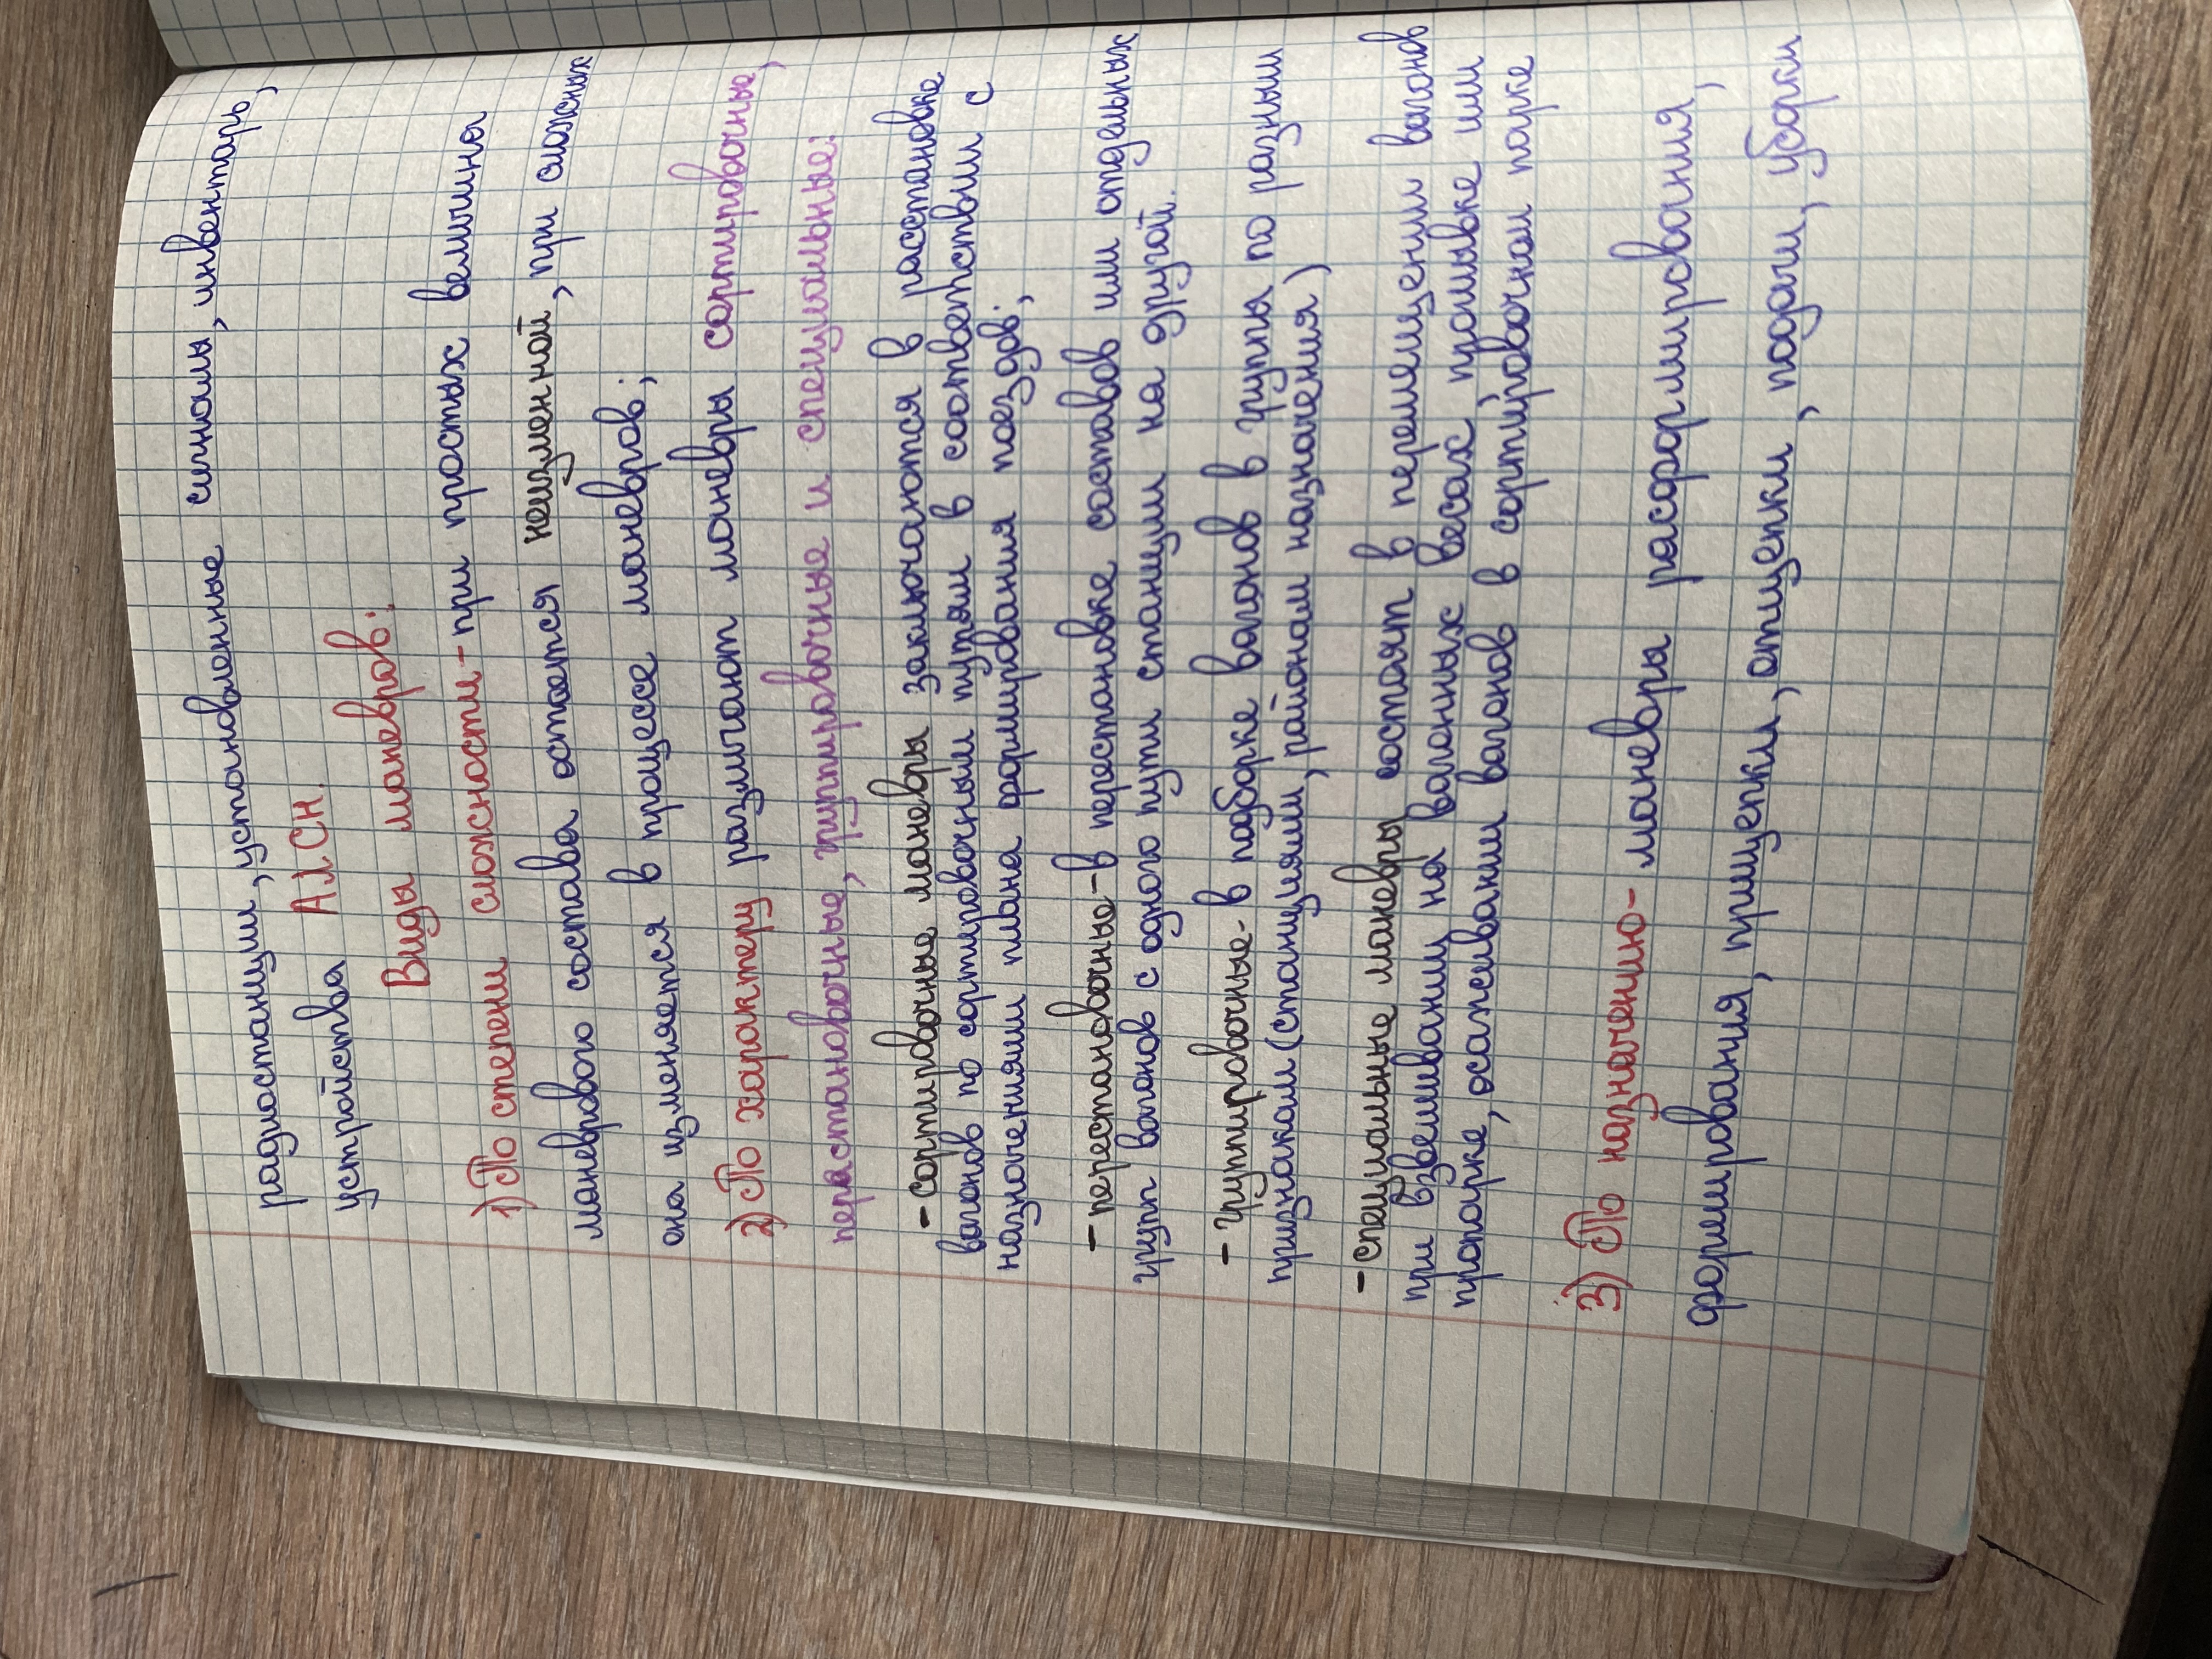 радиостанции, установленные сигналы, инвентарь,
устройства АЛСН.
Виды маневров:
1) По степени сложности - при простых величина
маневрового состава остается неизменной, при сложных
она изменяется в процессе маневров;
2) По характеру различают маневры сортировочные,
перестановочные, группировочные и специальные:
- сортировочные маневры заключаются в расстановке
вагонов по сортировочным путям в соответствии с
назначениями плана формирования поездов;
- перестановочные - в перестановке составов или отдельных
групп вагонов с одного пути станции на другой.
- группировочные - в подборке вагонов в группы по разным
признакам (станциям, районам назначения)
- специальные маневры состоят в перемещении вагонов
при взвешивании на вагонных весах, промывке или
пропарке, осаживании вагонов в сортировочном парке
3) По назначению - маневры расформирования,
формирования, прицепки, отцепки, подачи, уборки